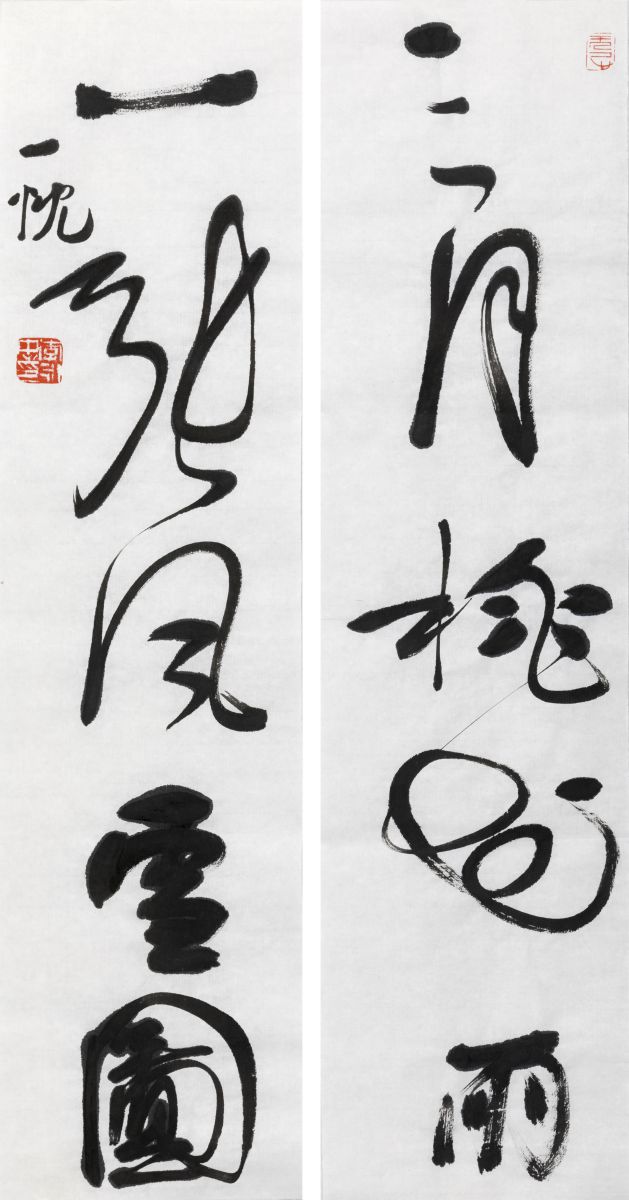 三月桃花雨
一張風雪圖
一忱